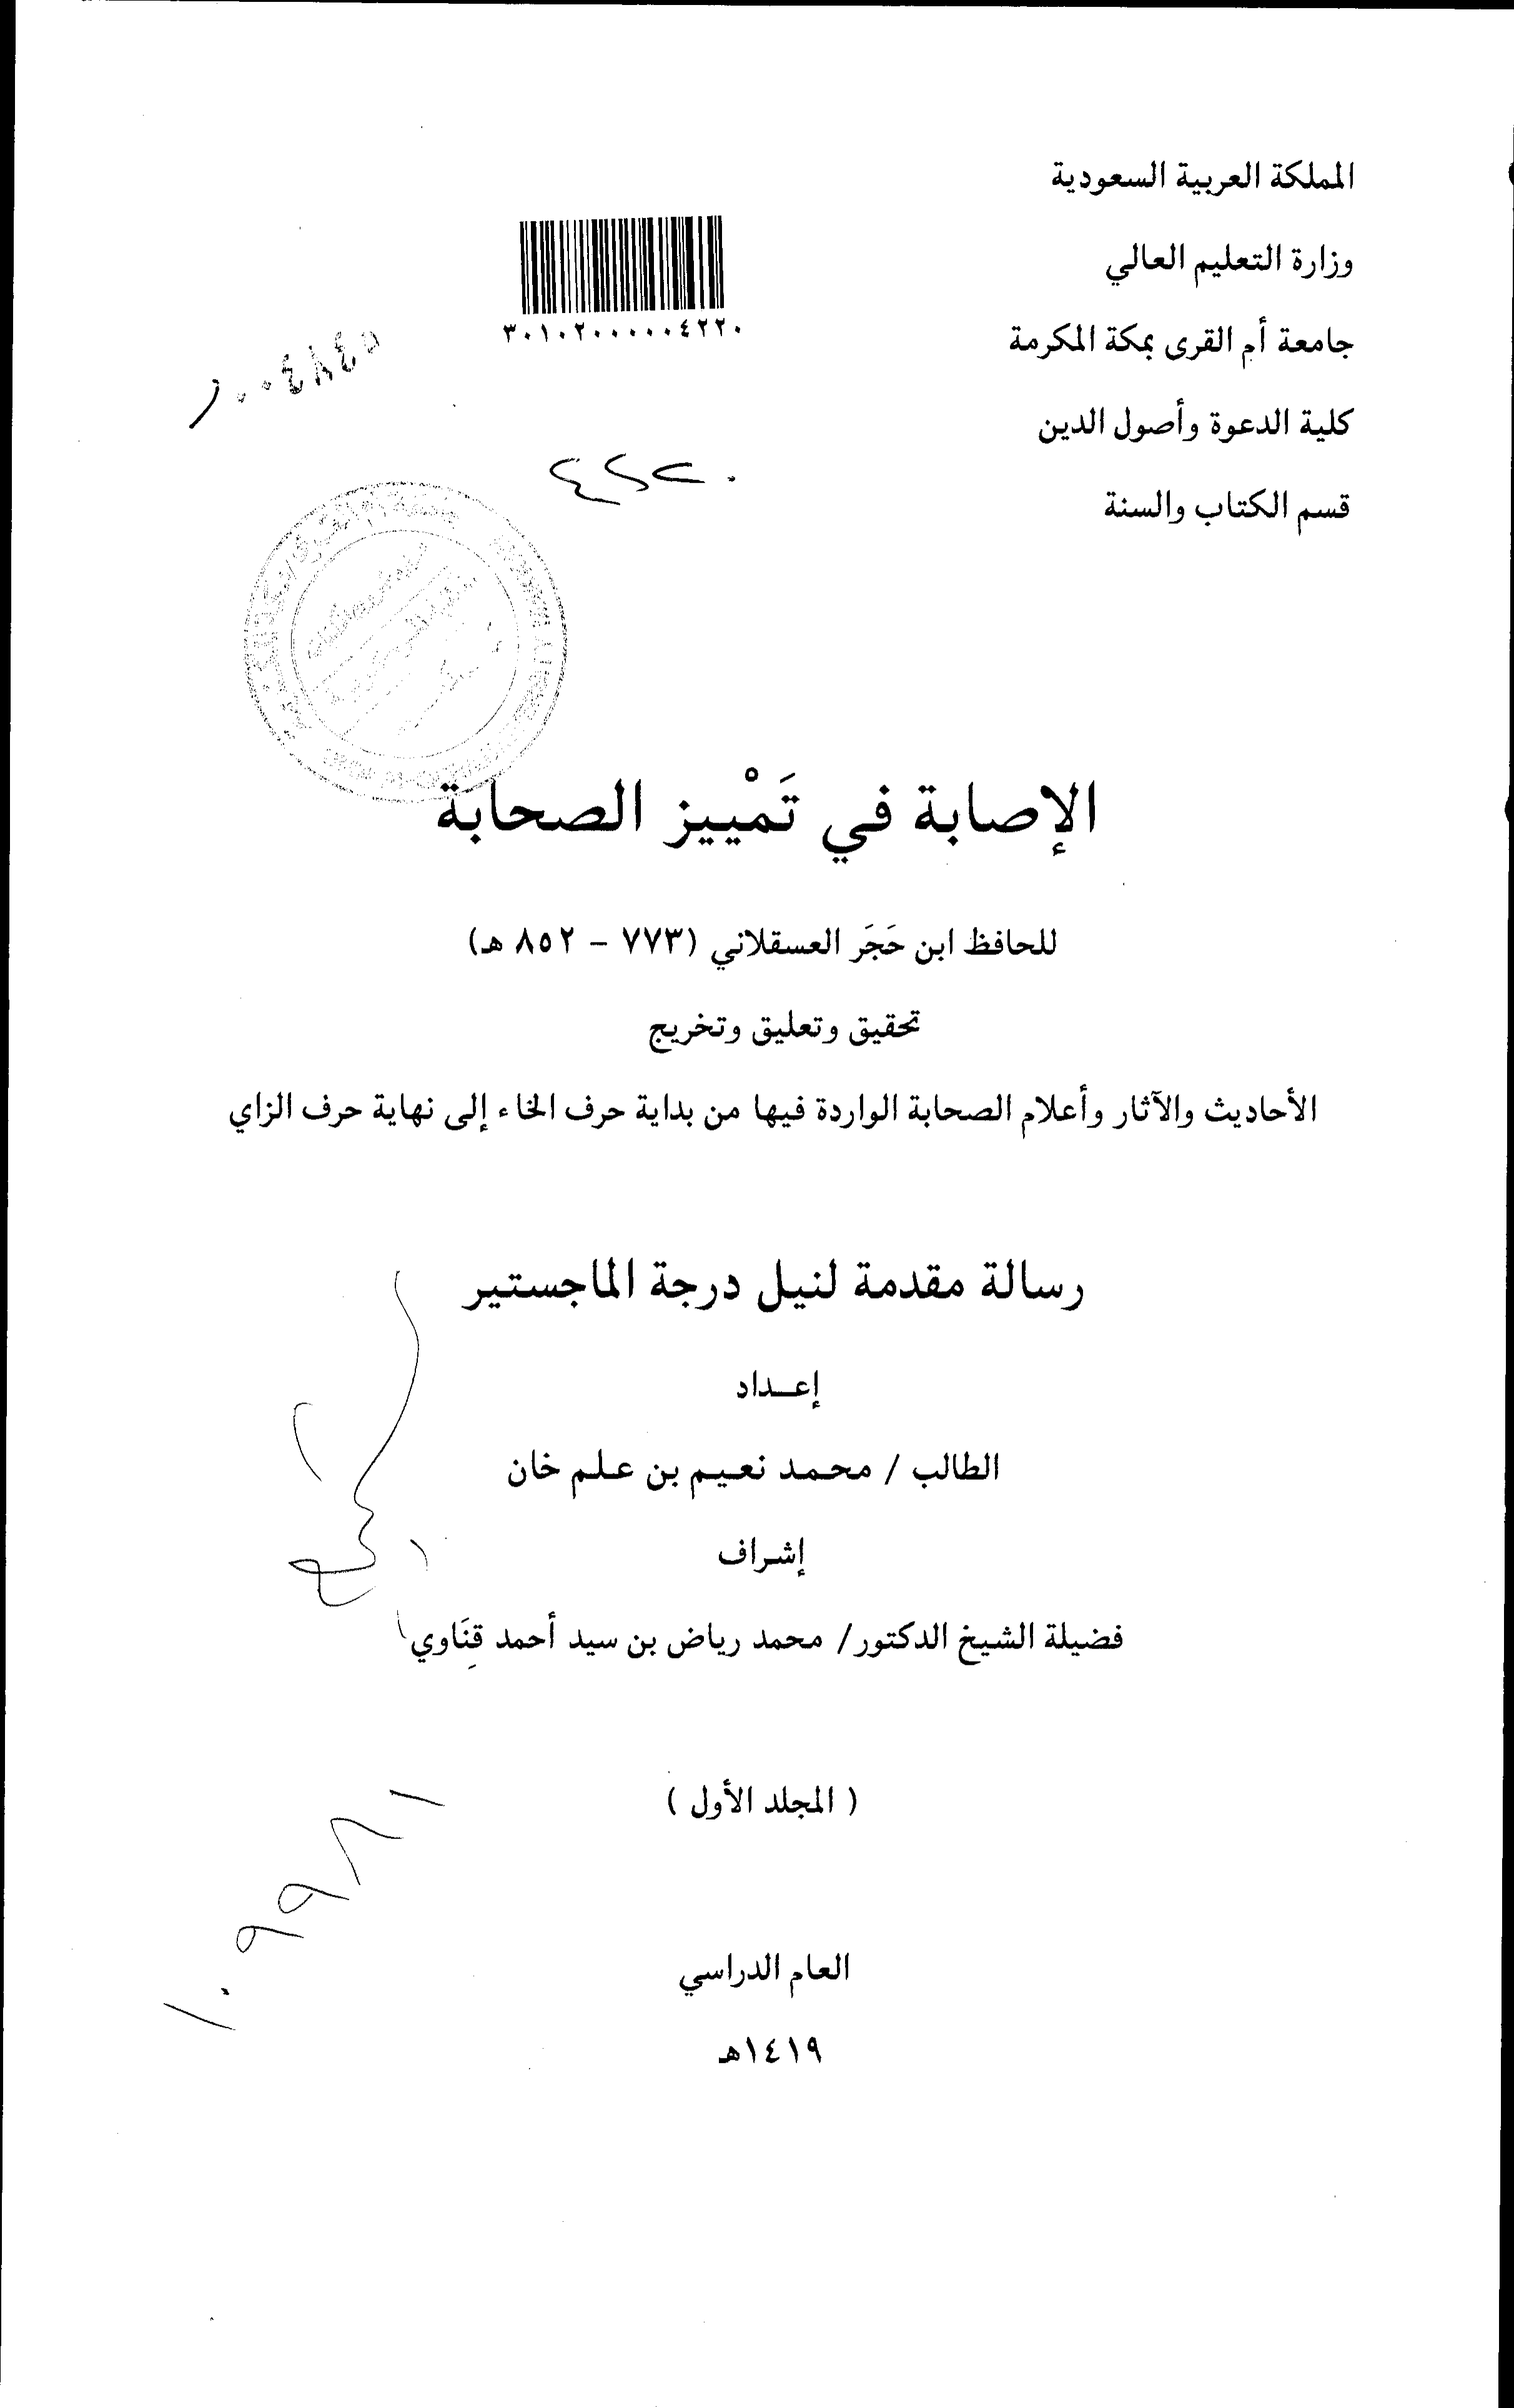 المملكة العربية السعودية
وزارة التعليم العالي
جامعة أم القرى بمكة المكرمة
كلية الدعوة وأصول الدين
قسم الكتاب والسنة
٣٠١٠٢٠٠٠٠٠٤٢٢٠
٤٢٢٠
الإصابة في تَمْييز الصحابة
للحافظ ابن حَجَر العسقلاني (٧٧٣ – ٨٥٢ هـ)
تحقيق وتعليق وتخريج
الأحاديث والآثار وأعلام الصحابة الواردة فيها من بداية حرف الخاء إلى نهاية حرف الزاي
رسالة مقدمة لنيل درجة الماجستير
إعـــداد
الطالب / محمد نعيم بن علم خان
إشراف
فضيلة الشيخ الدكتور/ محمد رياض بن سيد أحمد قِنَاوي
( المجلد الأول )
العام الدراسي
١٤١٩هـ